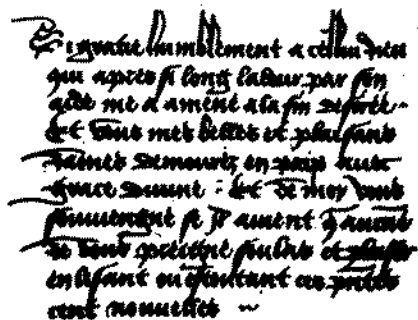 gracie humblement a cellui dieu
qui apres si long labeur par son
aide me a amené a la fin desiree
Et vous mes belles et plaisans
dames demourez en paix avec
grace divine · Et de moy vous
souviengne se il avient q̄ aucune
de vous preigne soulas et plaisir
en lisant ou escoutant ces
cent nouvelles